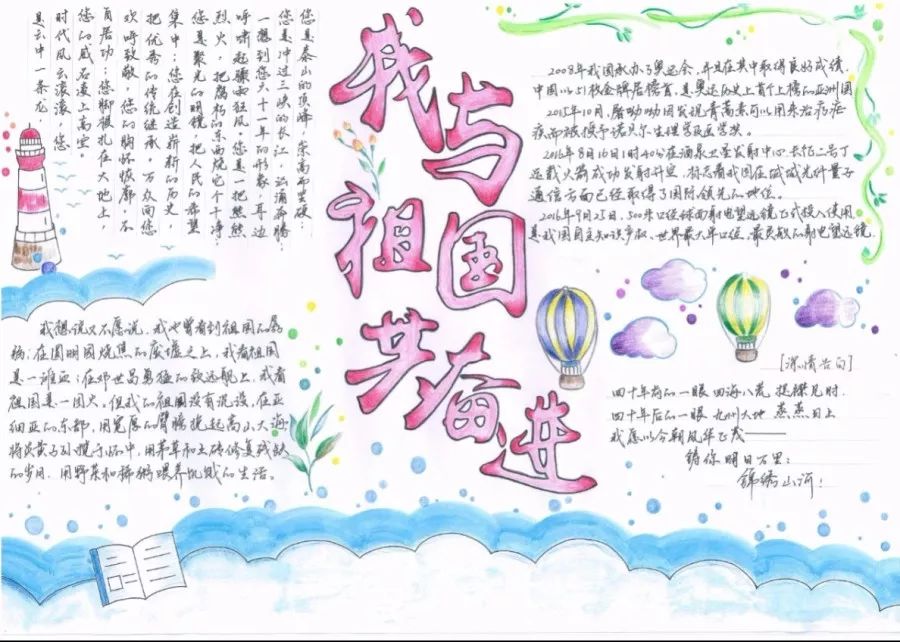 我与祖国共奋进
您是泰山的顶峰,崇高而坚硬;
您是冲过三峡的长江,汹涌奔腾;
一想到您六十一年的形象,耳边
呼啸起骤和狂风。您是一把熊熊
烈火,把腐朽的东西烧它个干净;
您是聚光的明镜,把人民的希望
集中;您在创造崭新的历史,
把优秀的传统继承。万众向您
欢呼致敬,您的胸怀恢廓,不
自居功;您脚板扎在大地上,
您的威名凌上高空。
时代风云滚滚,您
是云中一条龙
2008年我国承办了奥运会,并且在其中取得良好成绩.
中国以51枚金牌居榜首,是奥运历史上首个上榜的亚洲国
2015年10月,屠呦呦因发现青蒿素可以用来治疗疟
疾而被授予诺贝尔生理学及医学奖。
2016年8月16日1时40分在酒泉卫星发射中心长征二号丁
运载火箭成功发射升空,标志着我国在 光纤量子
通信方面已经取得了国际领先的地位。
2016年9月25日,500米口径球面射电望远镜正式投入使用
是我国自主知识产权、世界最大单口径、最灵敏的射电望远镜.
我想说又不愿说,我也曾看到祖国的孱
弱:在圆明园烧焦的废墟之上,我看祖国
是一滩血;在邓世昌勇猛的致远舰上,我看
祖国是一团火。但我的祖国没有沉没,在亚
细亚的东部,用宽厚的臂膀挽起高山大海
将炎黄子孙揽于怀中,用茅草和土砖修复残缺
的岁月,用野菜和稀粥喂养饥饿的生活。
[诗情告白]
四十年前的一眼 四海八荒 捉襟见肘.
四十年后的一眼 九州大地 蒸蒸日上
我愿以今朝风华正茂——
铸你明日万里:
锦绣山河!